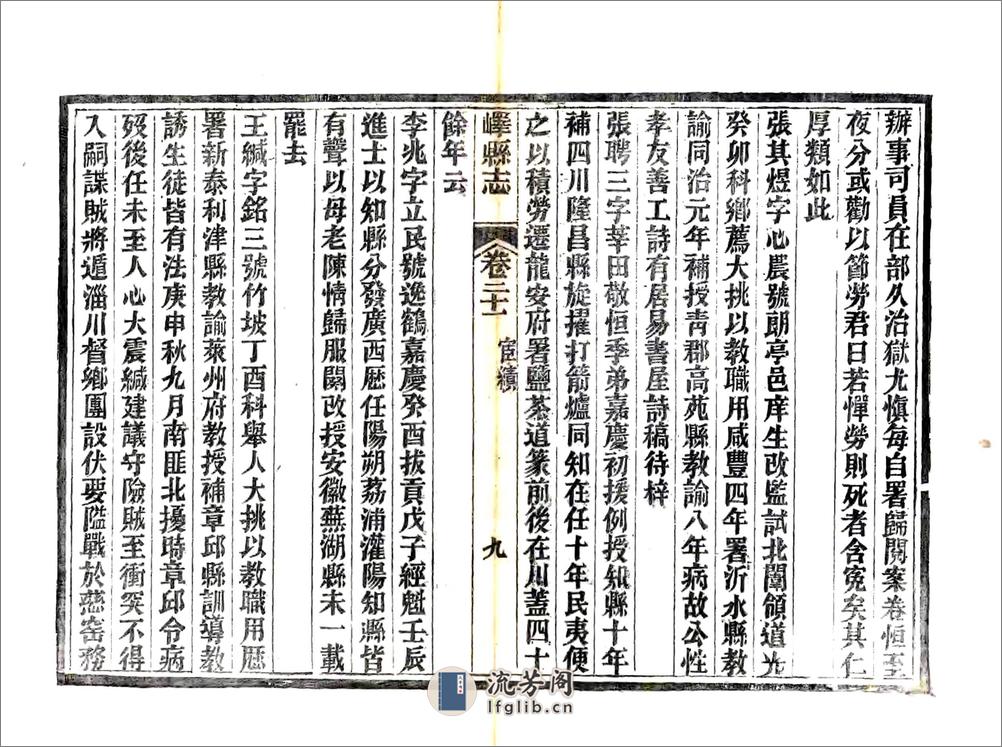 辦事司員在部久治獄尤慎每自署歸閱案卷恒至
夜分或勸以節勞君曰若憚勞則死者含寃矣其仁
厚類如此
張其煜字心農號朗亭邑庠生改監試北闈領道光
癸卯科鄉薦大挑以教職用咸豐四年署沂水縣教
諭同治元年補授青郡高苑縣教諭八年病故公性
孝友善工詩有居易書屋詩稿待梓
張聘三字莘田敬恒季弟嘉慶初援例授知縣十年
補四川隆昌縣旋擢打箭爐同知在任十年民夷便
之以積勞遷龍安府署鹽茶道篆前後在川蓋四十
嶧縣志
卷二十一
宦績
九
餘年云
李兆字立民號逸鶴嘉慶癸酉拔貢戊子經魁壬辰
進士以知縣分發廣西歷任陽朔荔浦灌陽知縣皆
有聲以母老陳情歸服闋改授安徽蕪湖縣未一載
罷去
王緘字銘三號竹坡丁酉科舉人大挑以教職用歷
署新泰利津縣教諭萊州府教授補章邱縣訓導教
誘生徒皆有法庚申秋九月南匪北擾時章邱令病
歿後任未至人心大震緘建議守險賊至衝突不得
入嗣諜賊將遁淄川督鄉團設伏要隘戰於慈窑務
流芳阁
lfglib.cn